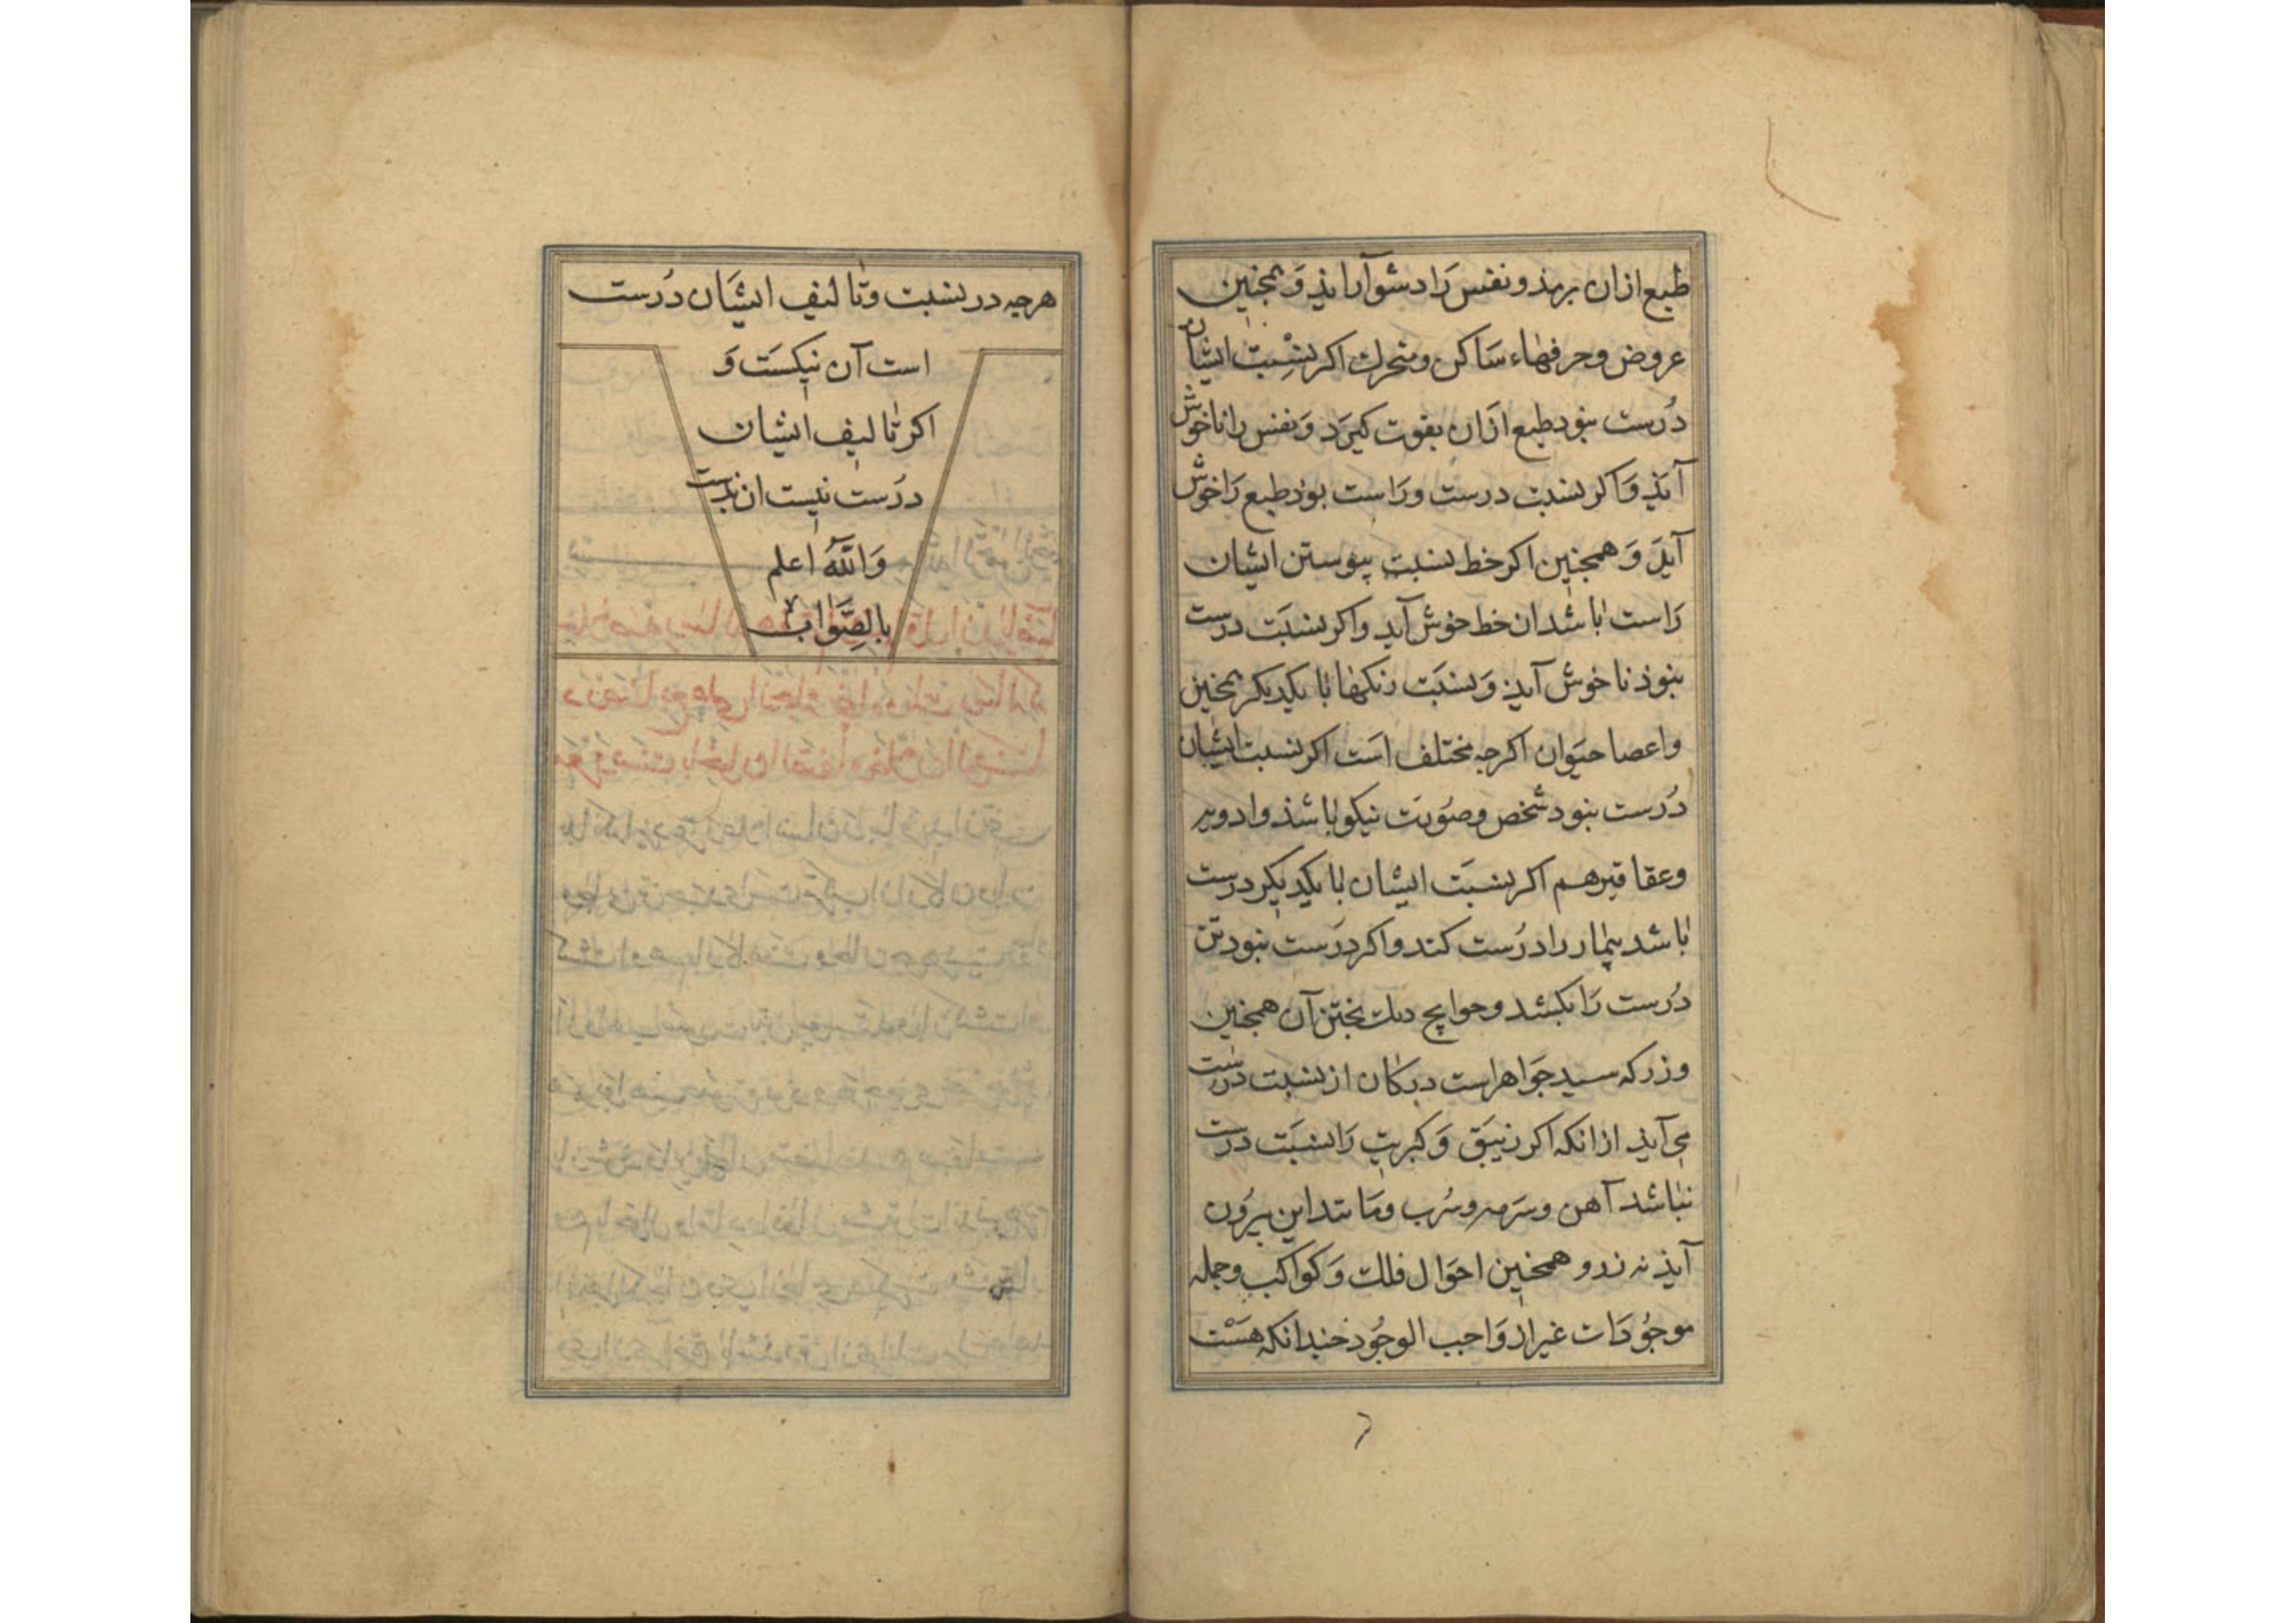 طبع ازان برمذ و نفس را دشوار آیذ و همچنین
عروض و حرفهاء ساکن و متحرک اکر نسبت ایشان
درست نبود طبع ازان بقوت کیرد و نفس را ناخوش
آیذ و اکر نسبت درست و راست بود طبع را خوش
آید و همجنین اکر خط نسبت پیوستن ایشان
راست باشد ان خط خوش آید و اکر نسبت درست
نبوذ ناخوش آیذ و نسبت رنکها با یکدیکر همچنین
و اعصا حیوان اکرجه مختلف است اکر نسبت ایشان
درست بنود شخص و صورت نیکو باشذ و ادویه
و عقاقیر هم اکر نسبت ایشان با یکدیکر درست
باشد بیمار را درست کند و اکر درست نبود تن
درست را بکشد و حوایج دیک بختن آن همجنین
و زر که سید جواهر است در کان از نسبت درست
می آیذ از انکه اکر زیبق و کبریت را نسبت درست
نباشد آهن و سرمه و سرب و مانند این بیرون
آیذ نه زر و همجنین احوال فلک و کواکب و جمله
موجودات غیر از واجب الوجوذ جندانکه هست
هرجه در نسبت و تالیف ایشان درست
است آن نیکست و
اکر تالیف ایشان
درست نیست ان بدست
والله اعلم
بالصواب